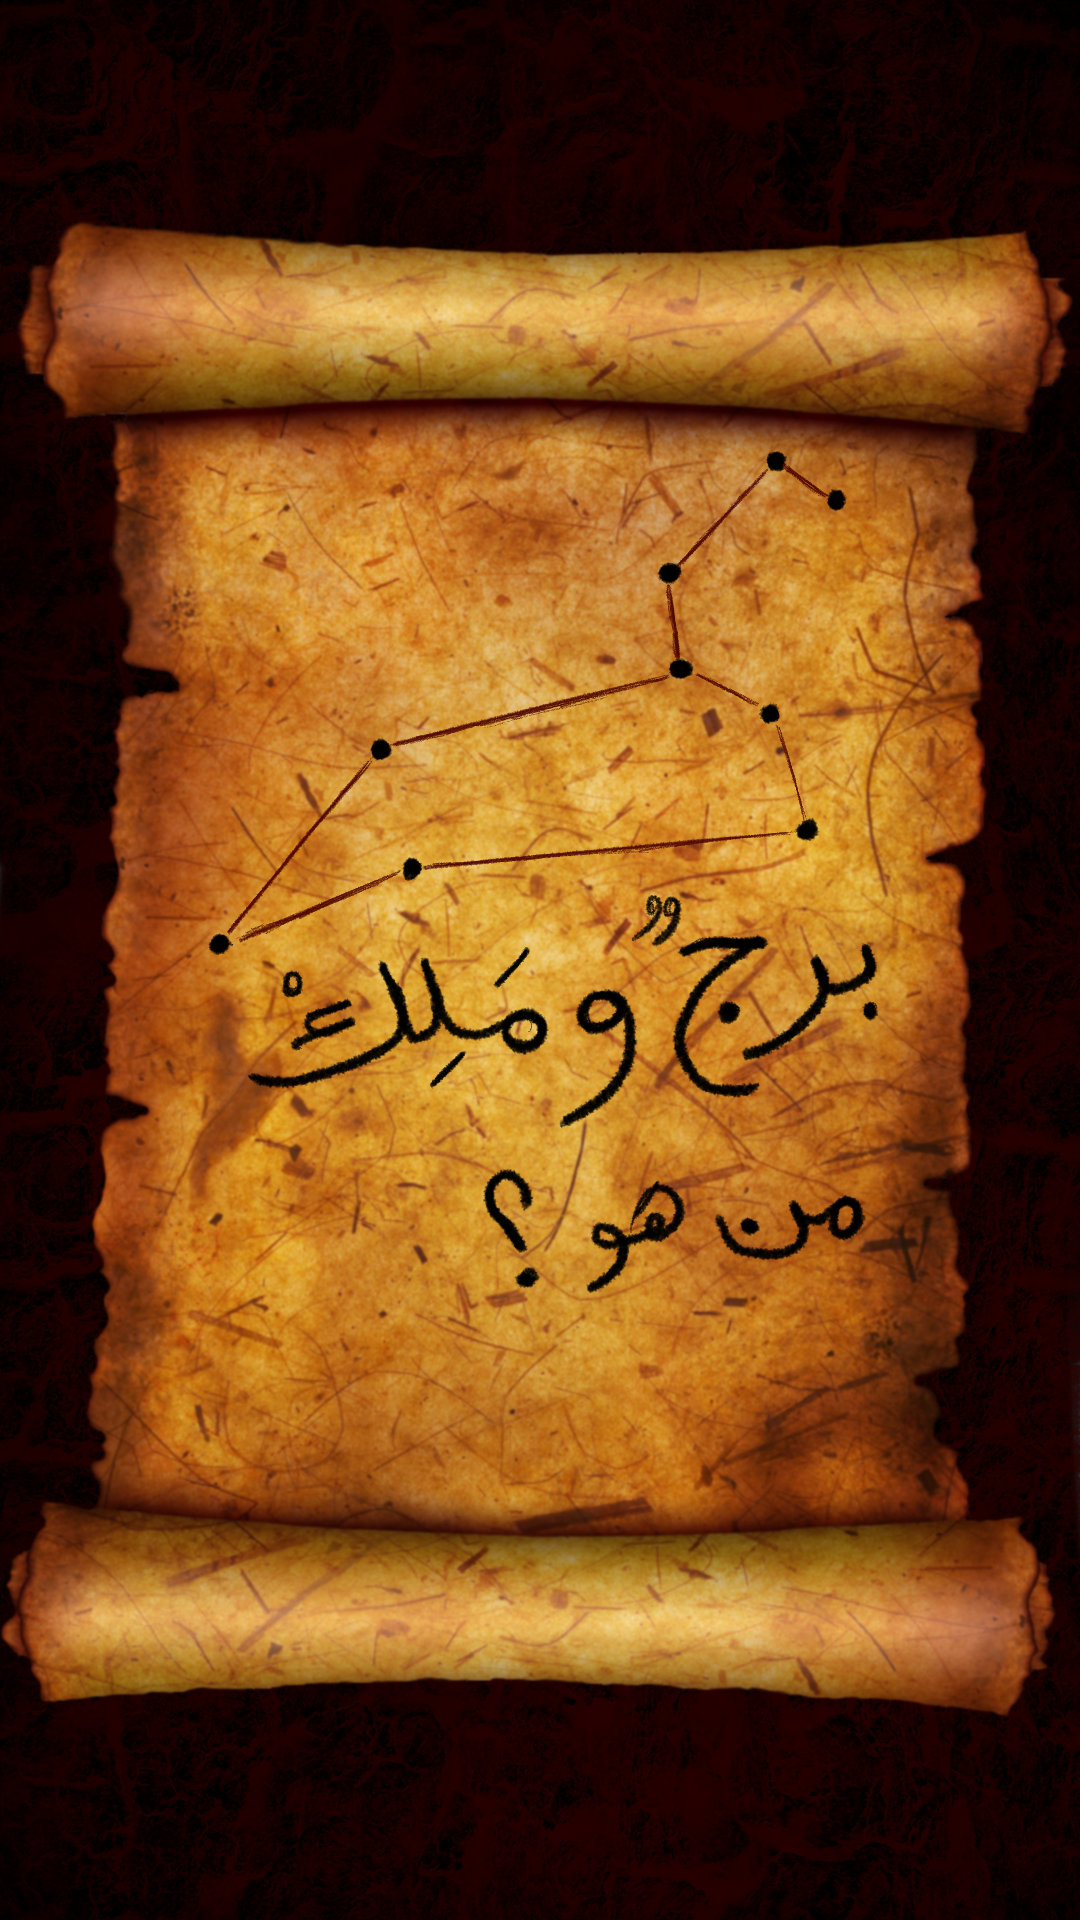 برجٌ ومَلِكْ
من هو ؟